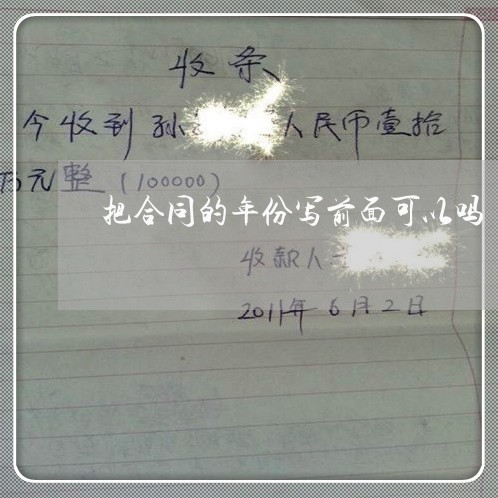 收条
今收到孙 人民币壹拾
万元整(100000)
把合同的年份写前面可以吗
收款人
2011年6月2日